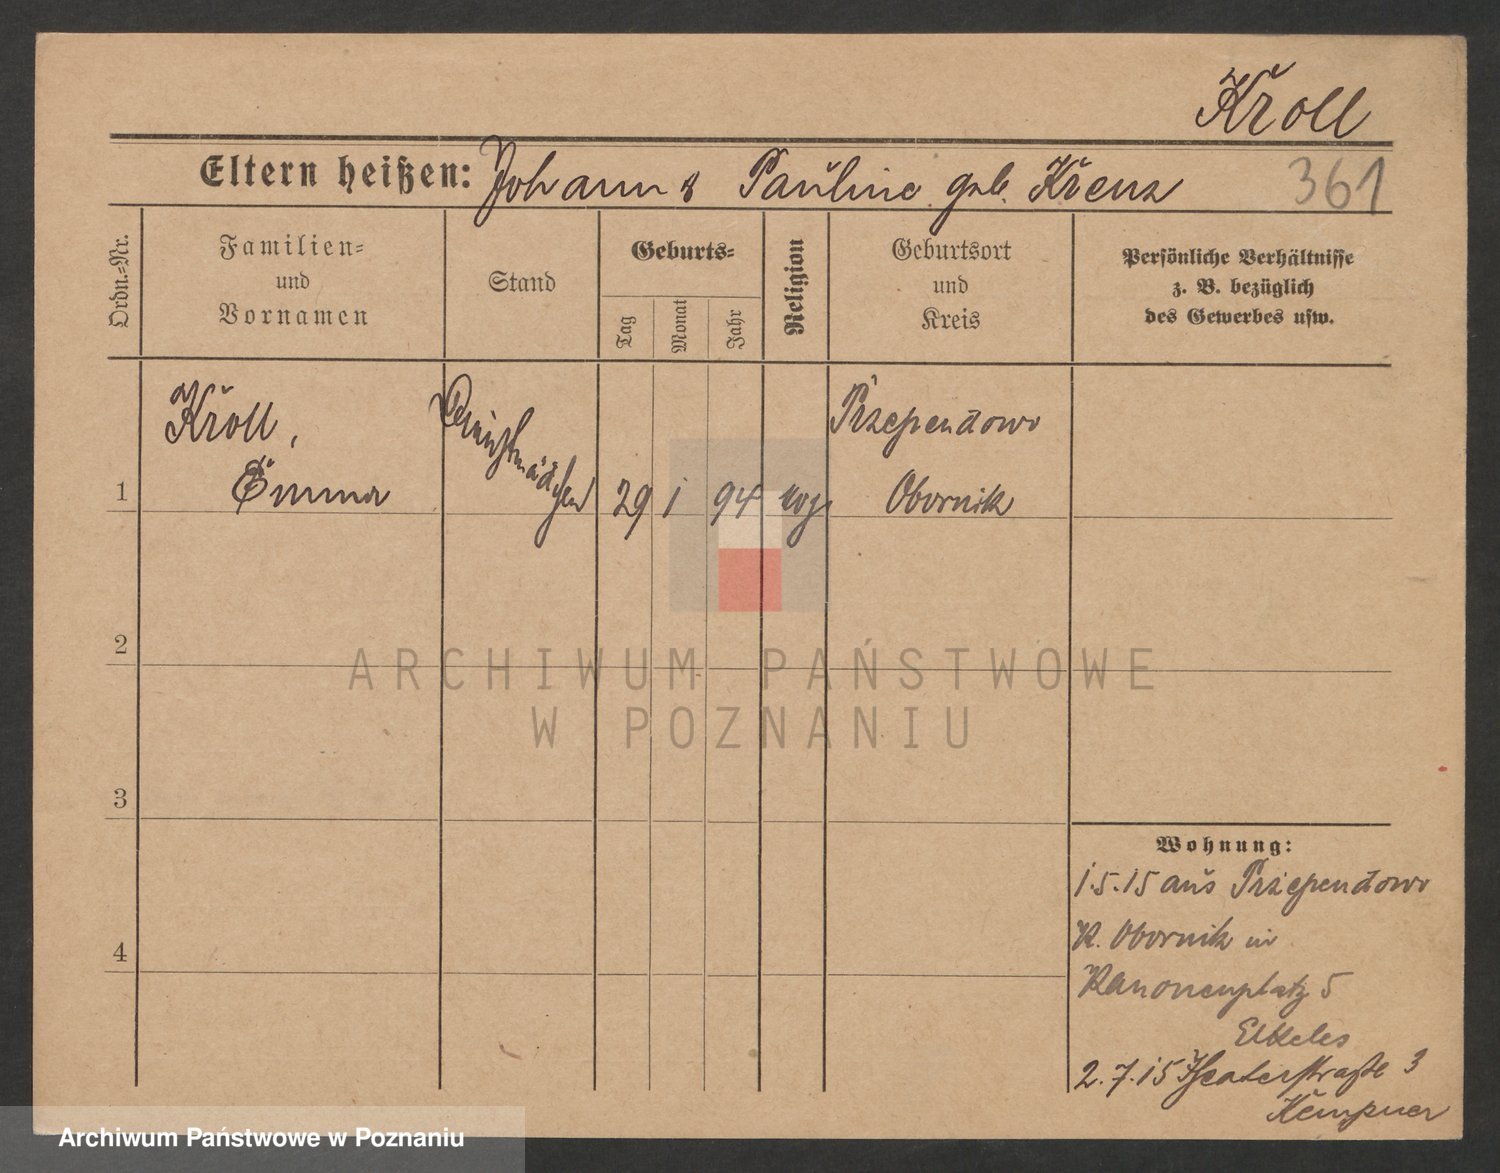 Kroll
Eltern heißen: Johann & Pauline geb. Krenz
361
Ordn.-Nr.
Familien-
und
Vornamen
Stand
Geburts-
Tag
Monat
Jahr
Religion
Geburtsort
und
Kreis
Persönliche Verhältnisse
z. B. bezüglich
des Gewerbes usw.
1
Kroll,
Emma
Dienstmädchen
29
1
94
evg.
Przependowo
Obornik
2
3
4
Wohnung:
1.5.15 aus Przependowo
K. Obornik in
Kanonenplatz 5
Elkeles
2.7.15 Theaterstraße 3
Kempner
ARCHIWUM PAŃSTWOWE
W POZNANIU
Archiwum Państwowe w Poznaniu